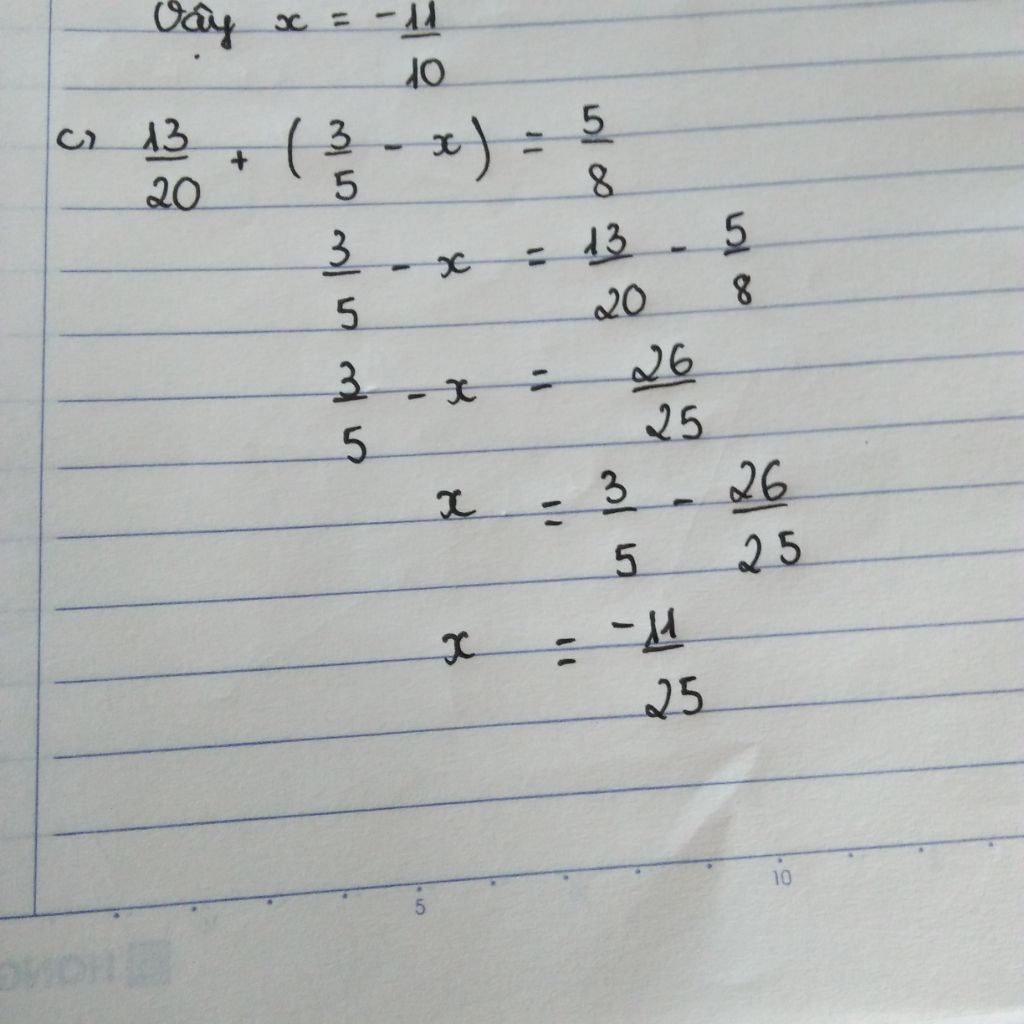 Vậy x = -11/10
c) 13/20 + (3/5 - x) = 5/8
3/5 - x = 13/20 - 5/8
3/5 - x = 26/25
x = 3/5 - 26/25
x = -11/25
5 10